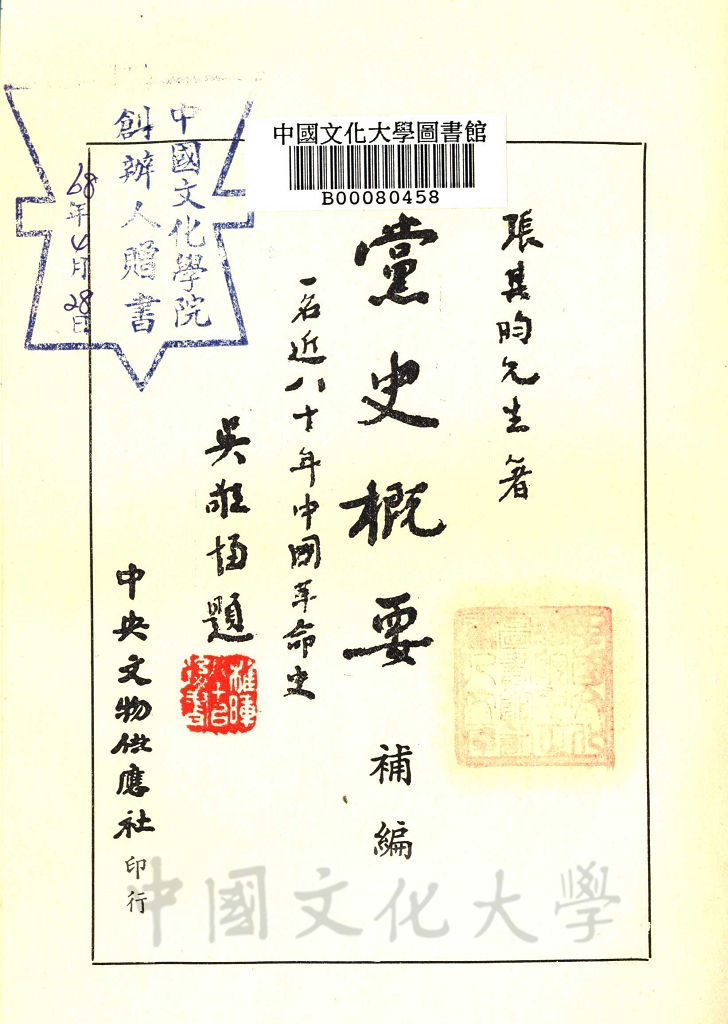 中國文化大學圖書館
B00080458
張其昀先生著
黨史概要 補編
一名近八十年中國革命史
吳敬恆題
中央文物供應社印行
中國文化學院
創辦人贈書
68年4月28日
中國文化大學